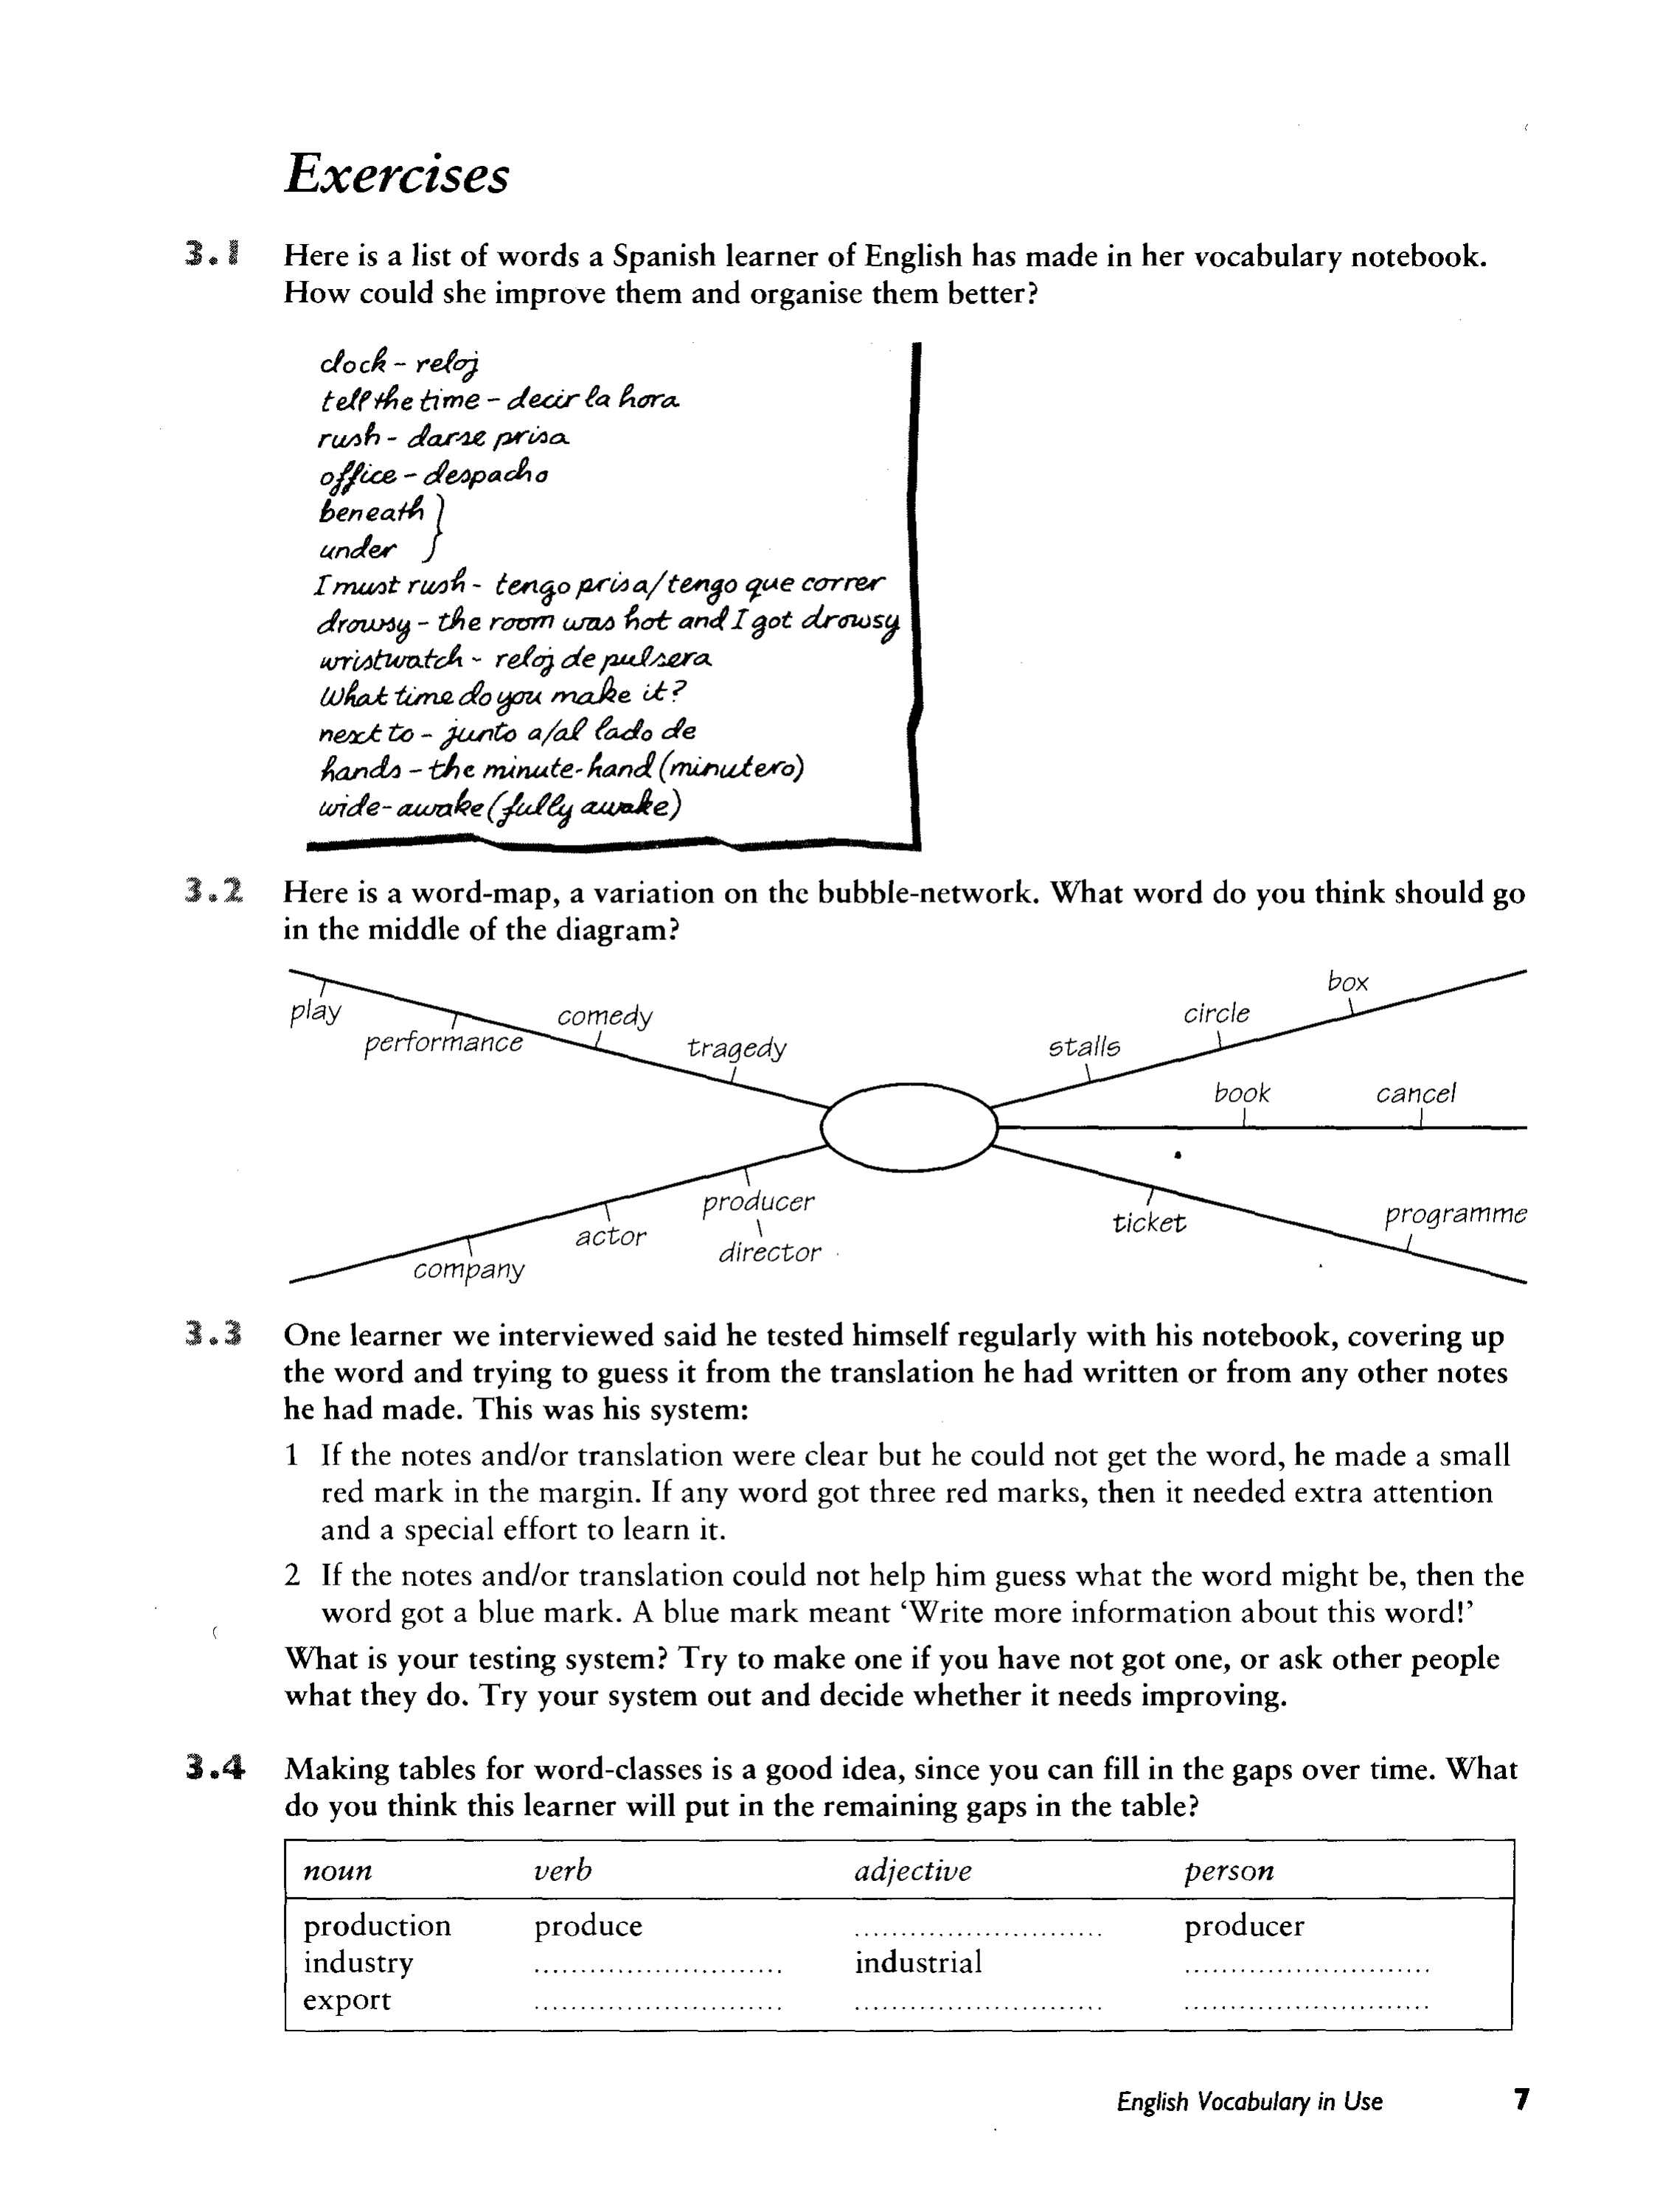 Exercises
3.1 Here is a list of words a Spanish learner of English has made in her vocabulary notebook.
How could she improve them and organise them better?
clock - reloj
tell the time - decir la hora
rush - darse prisa
office - despacho
beneath }
under
I must rush - tengo prisa/tengo que correr
drowsy - the room was hot and I got drowsy
wristwatch - reloj de pulsera
What time do you make it?
next to - junto a/al lado de
hands - the minute-hand (minutero)
wide-awake (fully awake)
3.2 Here is a word-map, a variation on the bubble-network. What word do you think should go
in the middle of the diagram?
play
performance
comedy
tragedy
stalls
circle
box
book
cancel
company
actor
producer
director
ticket
programme
3.3 One learner we interviewed said he tested himself regularly with his notebook, covering up
the word and trying to guess it from the translation he had written or from any other notes
he had made. This was his system:
1 If the notes and/or translation were clear but he could not get the word, he made a small
red mark in the margin. If any word got three red marks, then it needed extra attention
and a special effort to learn it.
2 If the notes and/or translation could not help him guess what the word might be, then the
word got a blue mark. A blue mark meant ‘Write more information about this word!’
What is your testing system? Try to make one if you have not got one, or ask other people
what they do. Try your system out and decide whether it needs improving.
3.4 Making tables for word-classes is a good idea, since you can fill in the gaps over time. What
do you think this learner will put in the remaining gaps in the table?
noun verb adjective person
production produce ........................... producer
industry ........................... industrial ...........................
export ........................... ........................... ...........................
English Vocabulary in Use 7